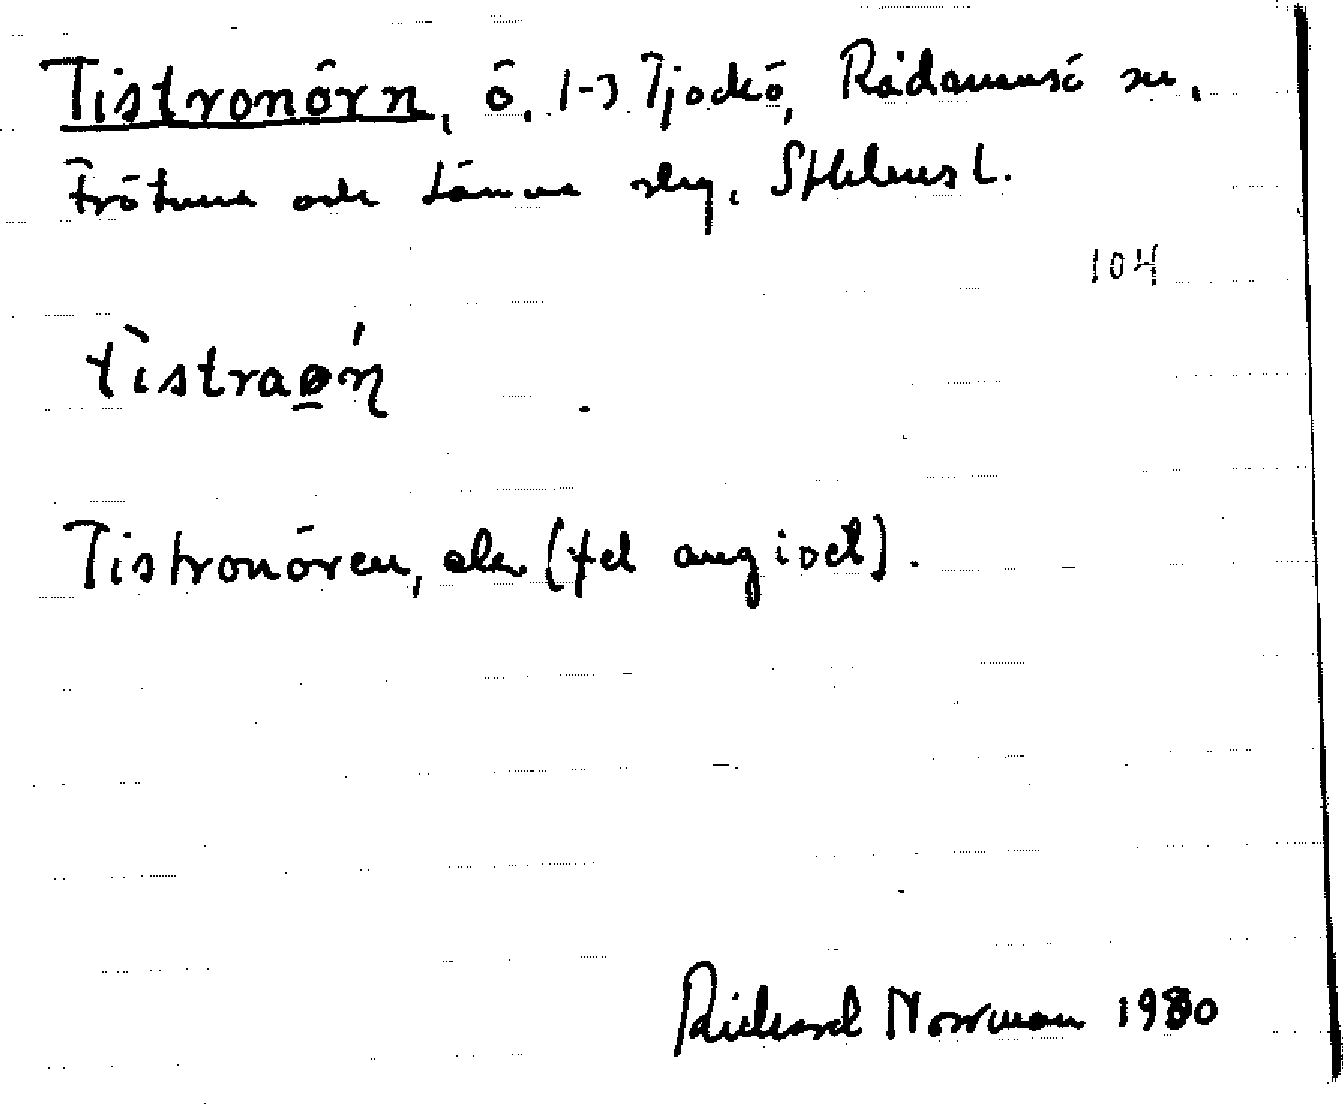 Tistronörn, ö. 1-3 Tjockö, Rådmansö sn,
Frötuna och Länna slg, Sthlms l.
104
tìstraøń
Tistronören, ek (fel angivet).
Richard Norrman 1980